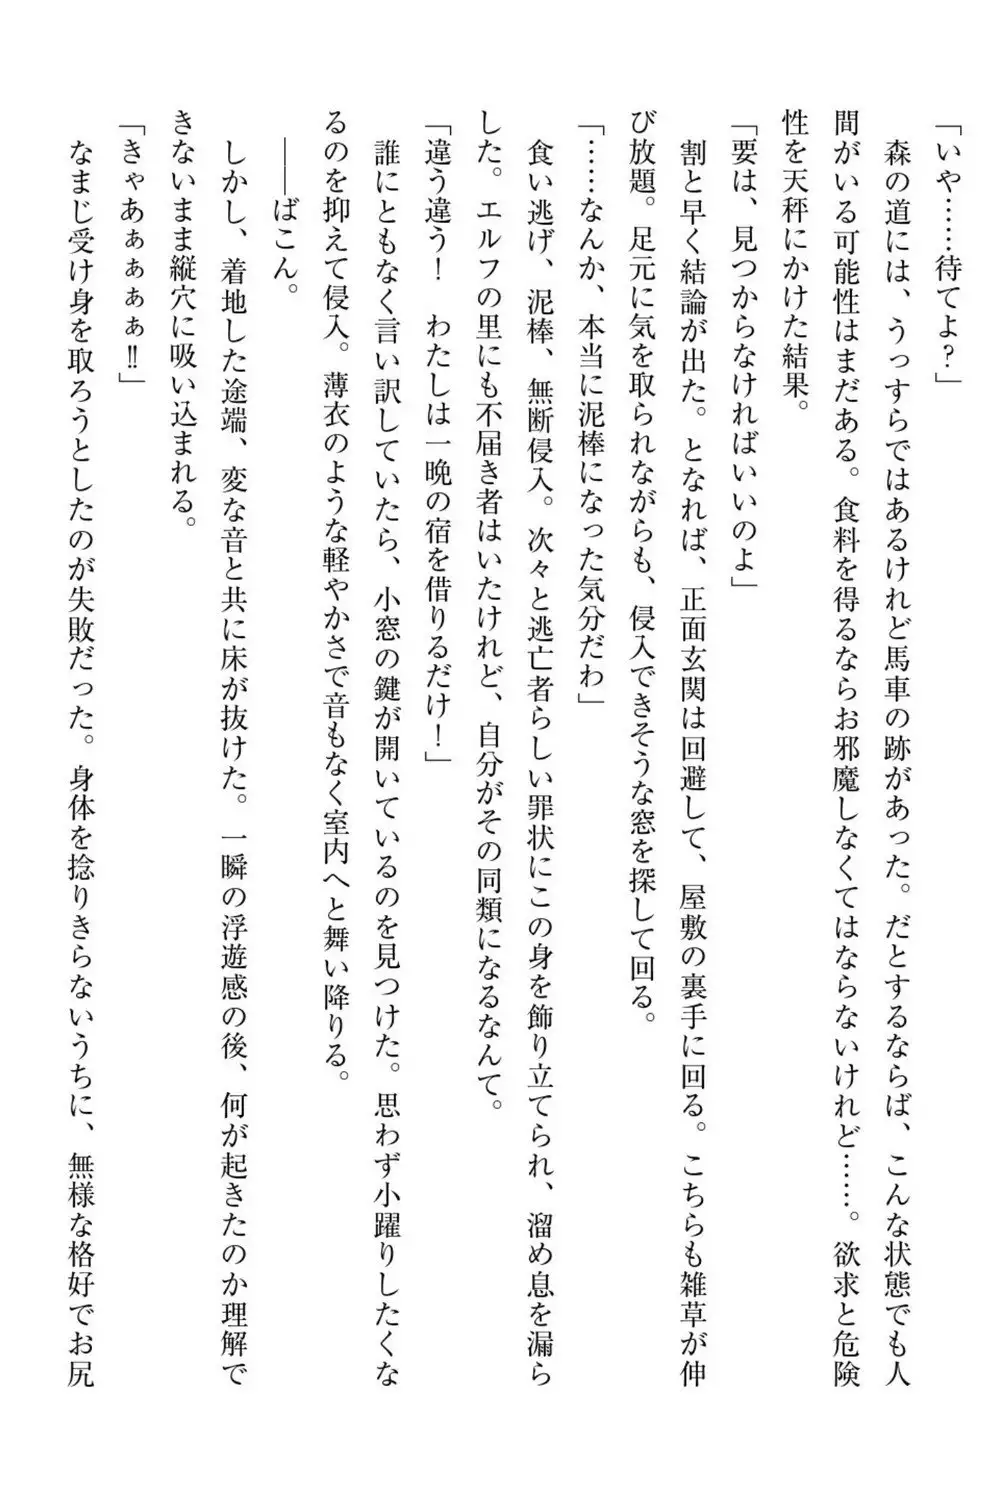 「いや……待てよ？」
　森の道には、うっすらではあるけれど馬車の跡があった。だとするならば、こんな状態でも人
間がいる可能性はまだある。食料を得るならお邪魔しなくてはならないけれど……。欲求と危険
性を天秤にかけた結果。
「要は、見つからなければいいのよ」
　割と早く結論が出た。となれば、正面玄関は回避して、屋敷の裏手に回る。こちらも雑草が伸
び放題。足元に気を取られながらも、侵入できそうな窓を探して回る。
「……なんか、本当に泥棒になった気分だわ」
　食い逃げ、泥棒、無断侵入。次々と逃亡者らしい罪状にこの身を飾り立てられ、溜め息を漏ら
した。エルフの里にも不届き者はいたけれど、自分がその同類になるなんて。
「違う違う！　わたしは一晩の宿を借りるだけ！」
　誰にともなく言い訳していたら、小窓の鍵が開いているのを見つけた。思わず小躍りしたくな
るのを抑えて侵入。薄衣のような軽やかさで音もなく室内へと舞い降りる。
　――ばこん。
　しかし、着地した途端、変な音と共に床が抜けた。一瞬の浮遊感の後、何が起きたのか理解で
きないまま縦穴に吸い込まれる。
「きゃあぁぁぁぁ‼」
　なまじ受け身を取ろうとしたのが失敗だった。身体を捻りきらないうちに、無様な格好でお尻